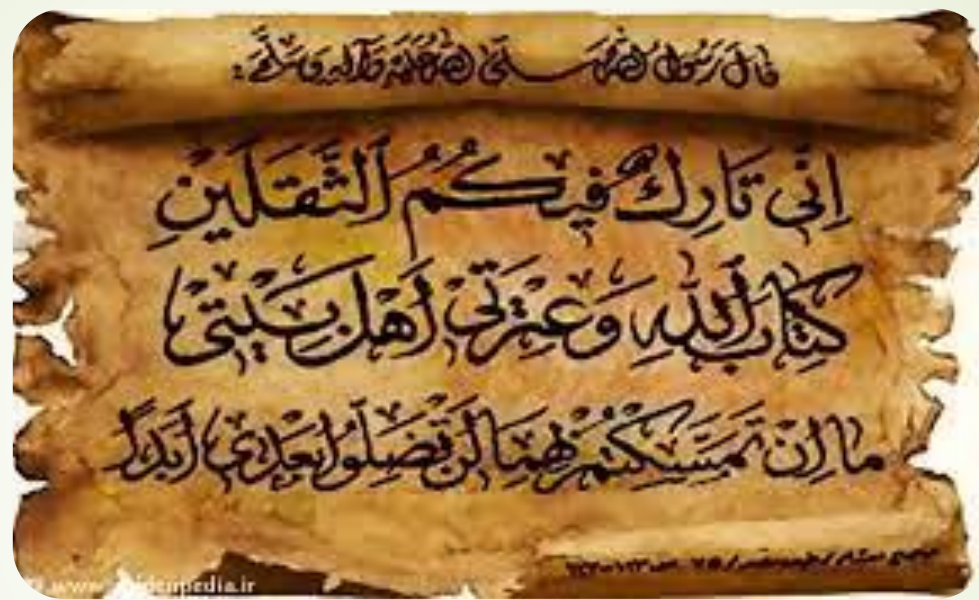 قالَ رَسُولُ اللهِ صَلَّى اللهُ عَلَيْهِ وَآلِهِ وَسَلَّمَ :
اِنّى تَارِكٌ فِيكُمُ اَلثَّقَلَيْنِ
كِتَابَ اَللهِ وَعِتْرَتِي أَهْلَ بَيْتي
ما اِنْ تَمَسَّكْتُمْ بِهِمَا لَنْ تَضِلُّوا بَعْدِي أَبَدًا